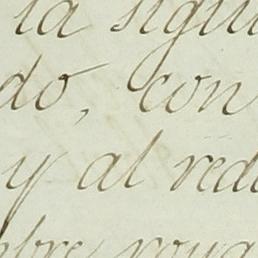 la sigui
do, con
y al rede
mbre, roya